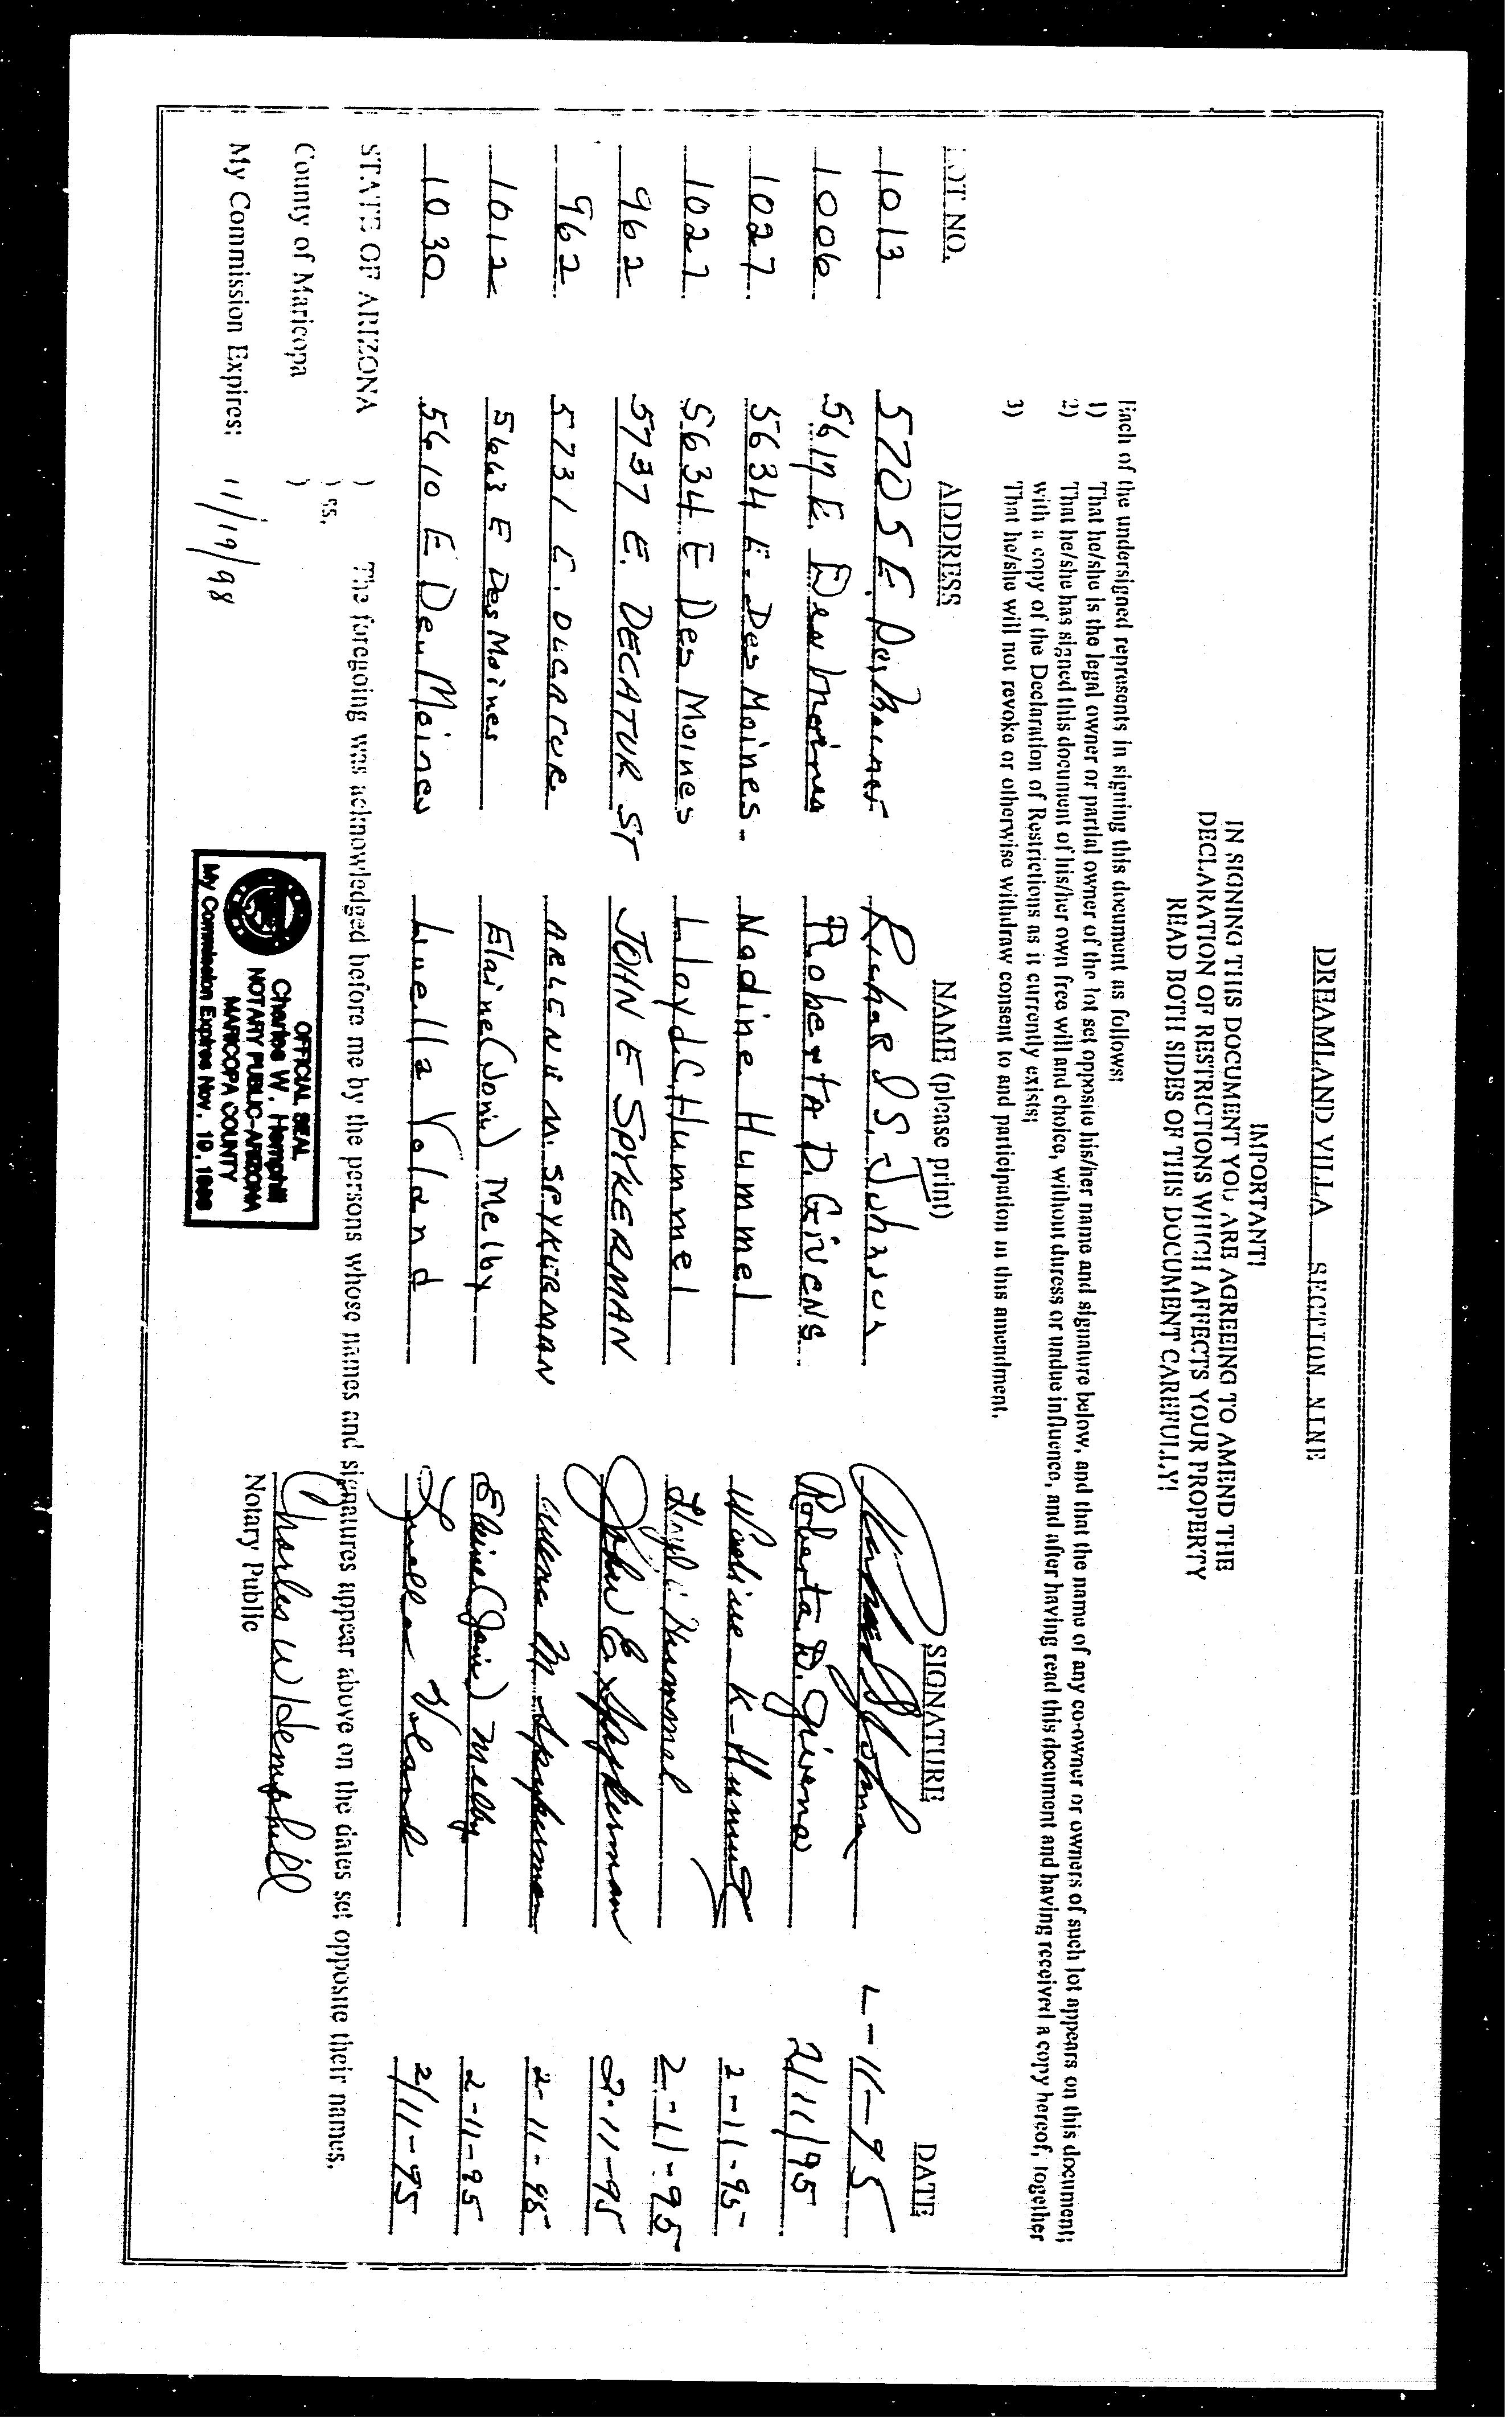 DREAMLAND VILLA SECTION NINE
IMPORTANT!
IN SIGNING THIS DOCUMENT YOU ARE AGREEING TO AMEND THE
DECLARATION OF RESTRICTIONS WHICH AFFECTS YOUR PROPERTY
READ BOTH SIDES OF THIS DOCUMENT CAREFULLY!
Each of the undersigned represents in signing this document as follows:
1) That he/she is the legal owner or partial owner of the lot set opposite his/her name and signature below, and that the name of any co-owner or owners of such lot appears on this document;
2) That he/she has signed this document of his/her own free will and choice, without duress or undue influence, and after having read this document and having received a copy hereof, together
with a copy of the Declaration of Restrictions as it currently exists;
3) That he/she will not revoke or otherwise withdraw consent to and participation in this amendment.
LOT NO. ADDRESS NAME (please print) SIGNATURE DATE
1013 5705 E. Des Moines Richard S. Johnson 2-11-95
1006 E. Des Moines Roberta D. Givens Roberta D. Givens 2/11/95
1027 5634 E. Des Moines. Nadine Hummel 2-11-95
1027 5634 E Des Moines Lloyd C. Hummel Lloyd C. Hummel 2-11-95
962 5737 E. DECATUR ST JOHN E SPYKERMAN John E. Spykerman 2-11-95
962 5731 E. DECATUR ARLENE M. SPYKERMAN Arlene M. Spykerman 2-11-95
1012 5663 E Des Moines Elaine (Joni) Melby Elaine (Joni) Melby 2-11-95
1030 5610 E Des Moines Luella Voland Luella Voland 2/11-95
STATE OF ARIZONA )
) ss. The foregoing was acknowledged before me by the persons whose names and signatures appear above on the dates set opposite their names.
County of Maricopa )
My Commission Expires: 11/19/98
Charles W Hemphill
Notary Public
OFFICIAL SEAL
Charles W. Hemphill
NOTARY PUBLIC-ARIZONA
MARICOPA COUNTY
My Commission Expires Nov. 19, 1998